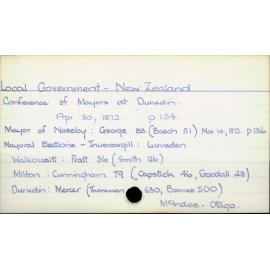 Local Government - New Zealand
Conference of Mayors at Dunedin.
Apr 30, 1872. p 134.
Mayor of Naseby: George 88 (Busch 51) Nov 14, 1873. p 136
Mayoral Elections - Invercargill: Lumsden
Waikouaiti: Pratt 36 (Smith 26)
Milton: Cunningham 79 (Capstick 46, Goodall 28)
Dunedin: Mercer ( 630, Barnes 500)
McIndoe - Otago.